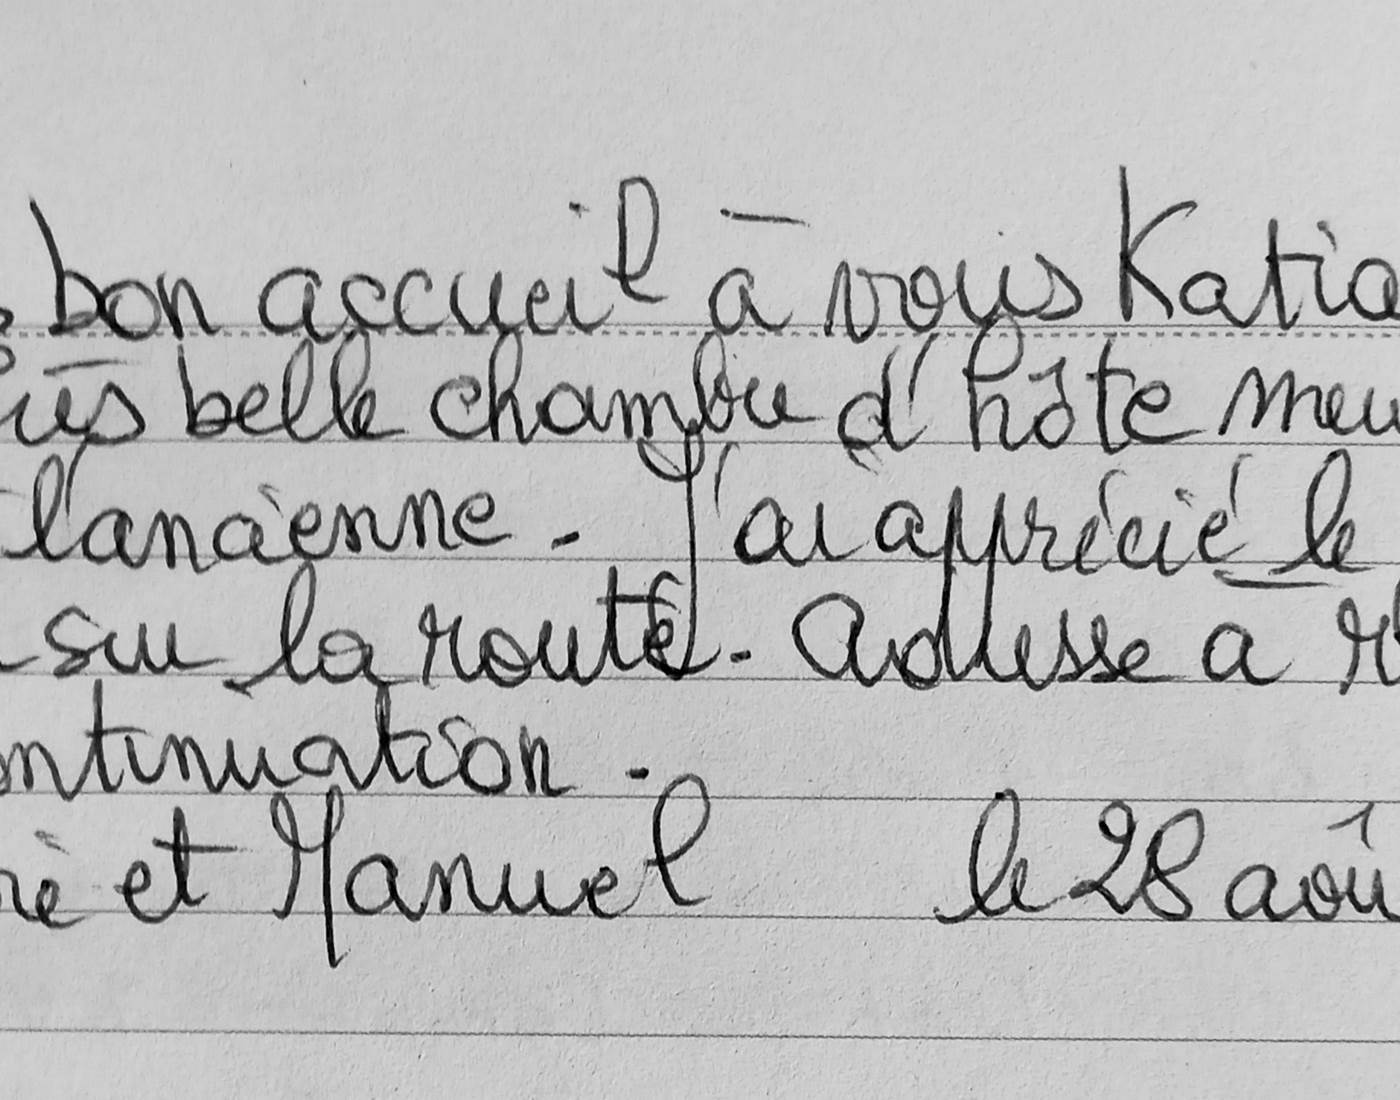 bon accueil à vous Katia
très belle chambre d'hôte meu
l'ancienne. J'ai apprécié le
sur la route. Adresse a r
ntinuation.
ré et Manuel le 28 aoû